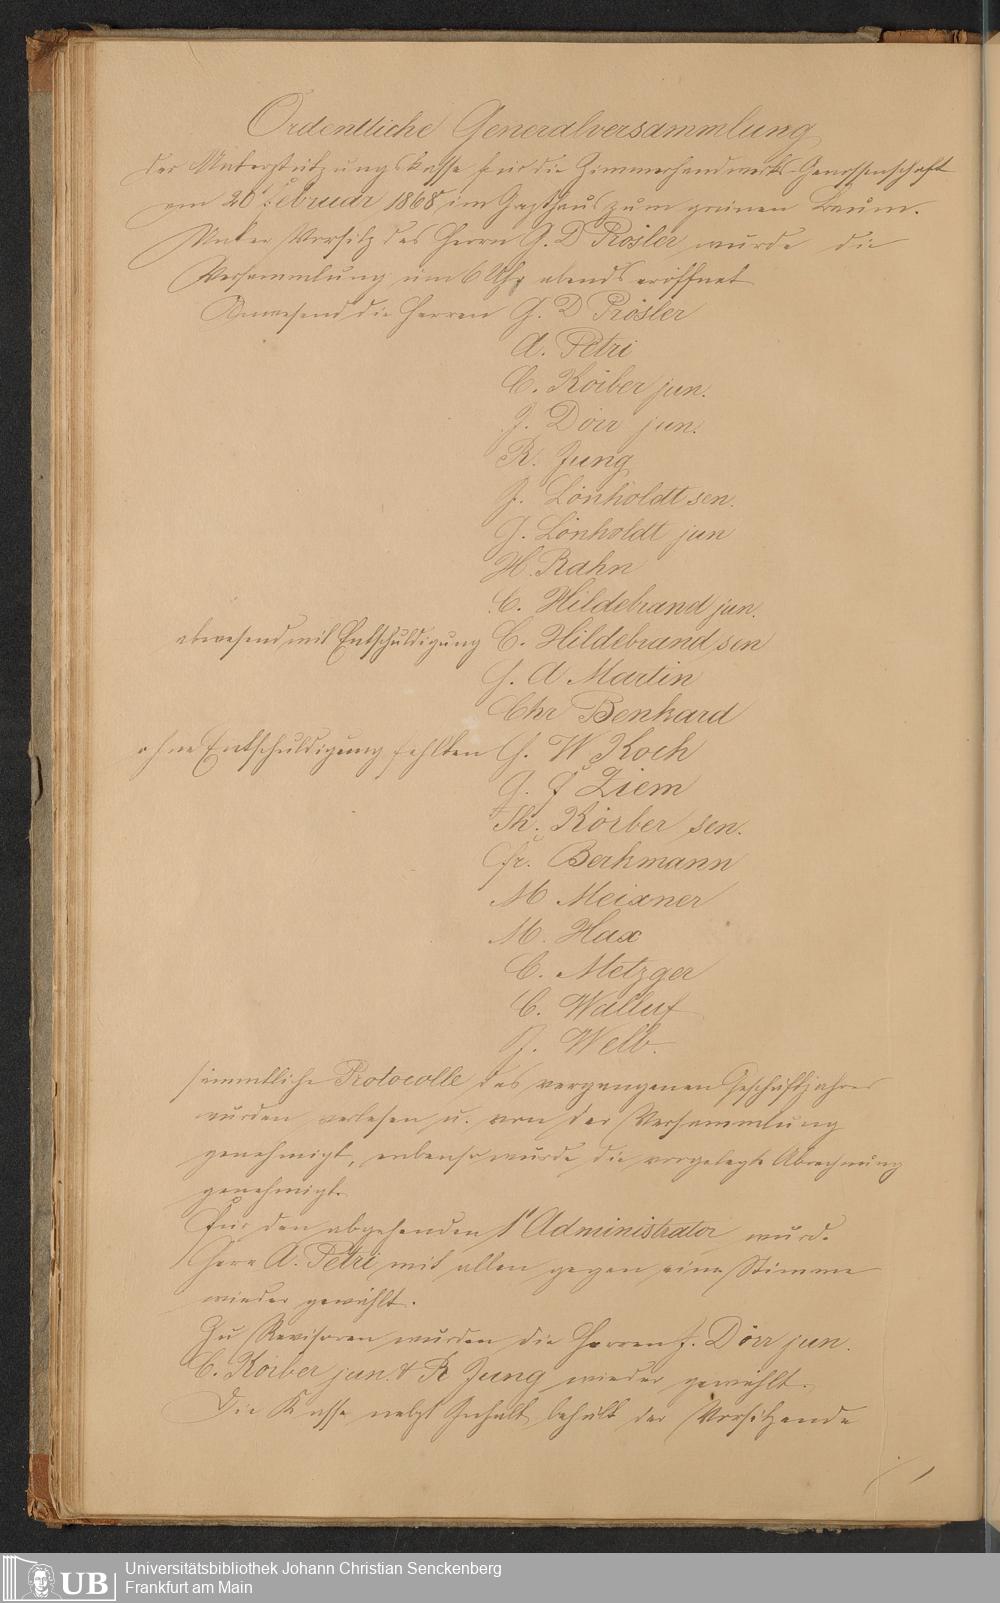 Ordentliche Generalversammlung
der Unterstützungskasse für die Zimmerhandwerks-Genossenschaft
am 20t Februar 1868 im Gasthaus zum grünen Baum.
Unter Vorsitz des Herrn G. D Prösler wurde die
Versammlung um 6 Uhr abends eröffnet
Anwesend die Herren G. D Prösler
A. Petri
C. Körber jun.
J. Dörr jun.
R. Jung
J. Lönholdt sen.
G. Lönholdt jun
H. Rahn
C. Hildebrand jun.
abwesend mit Entschuldigung C. Hildebrand sen
J. A Martin
Chr Benkard
ohne Entschuldigung fehlten G. W. Koch
J. J Ziem
Th. Körber sen.
Fr. Berkmann
M Meixner
M. Hax
C. Metzger
C. Walluf
J. Welb.
sämmtliche Protocolle des vergangenen Geschäftsjahres
wurden verlesen u. von der Versammlung
genehmigt, ebenso wurde die vorgelegte Abrechnung
genehmigt.
Für den abgehenden 1t Administrator wurde
Herr A. Petri mit allen gegen eine Stimme
wieder gewählt.
Zu Revisoren wurden die Herren J. Dörr jun.
C. Körber jun. & R Jung wieder gewählt.
Die Kasse nebst Gehalt behält der Vorsitzende
Universitätsbibliothek Johann Christian Senckenberg
Frankfurt am Main
UB